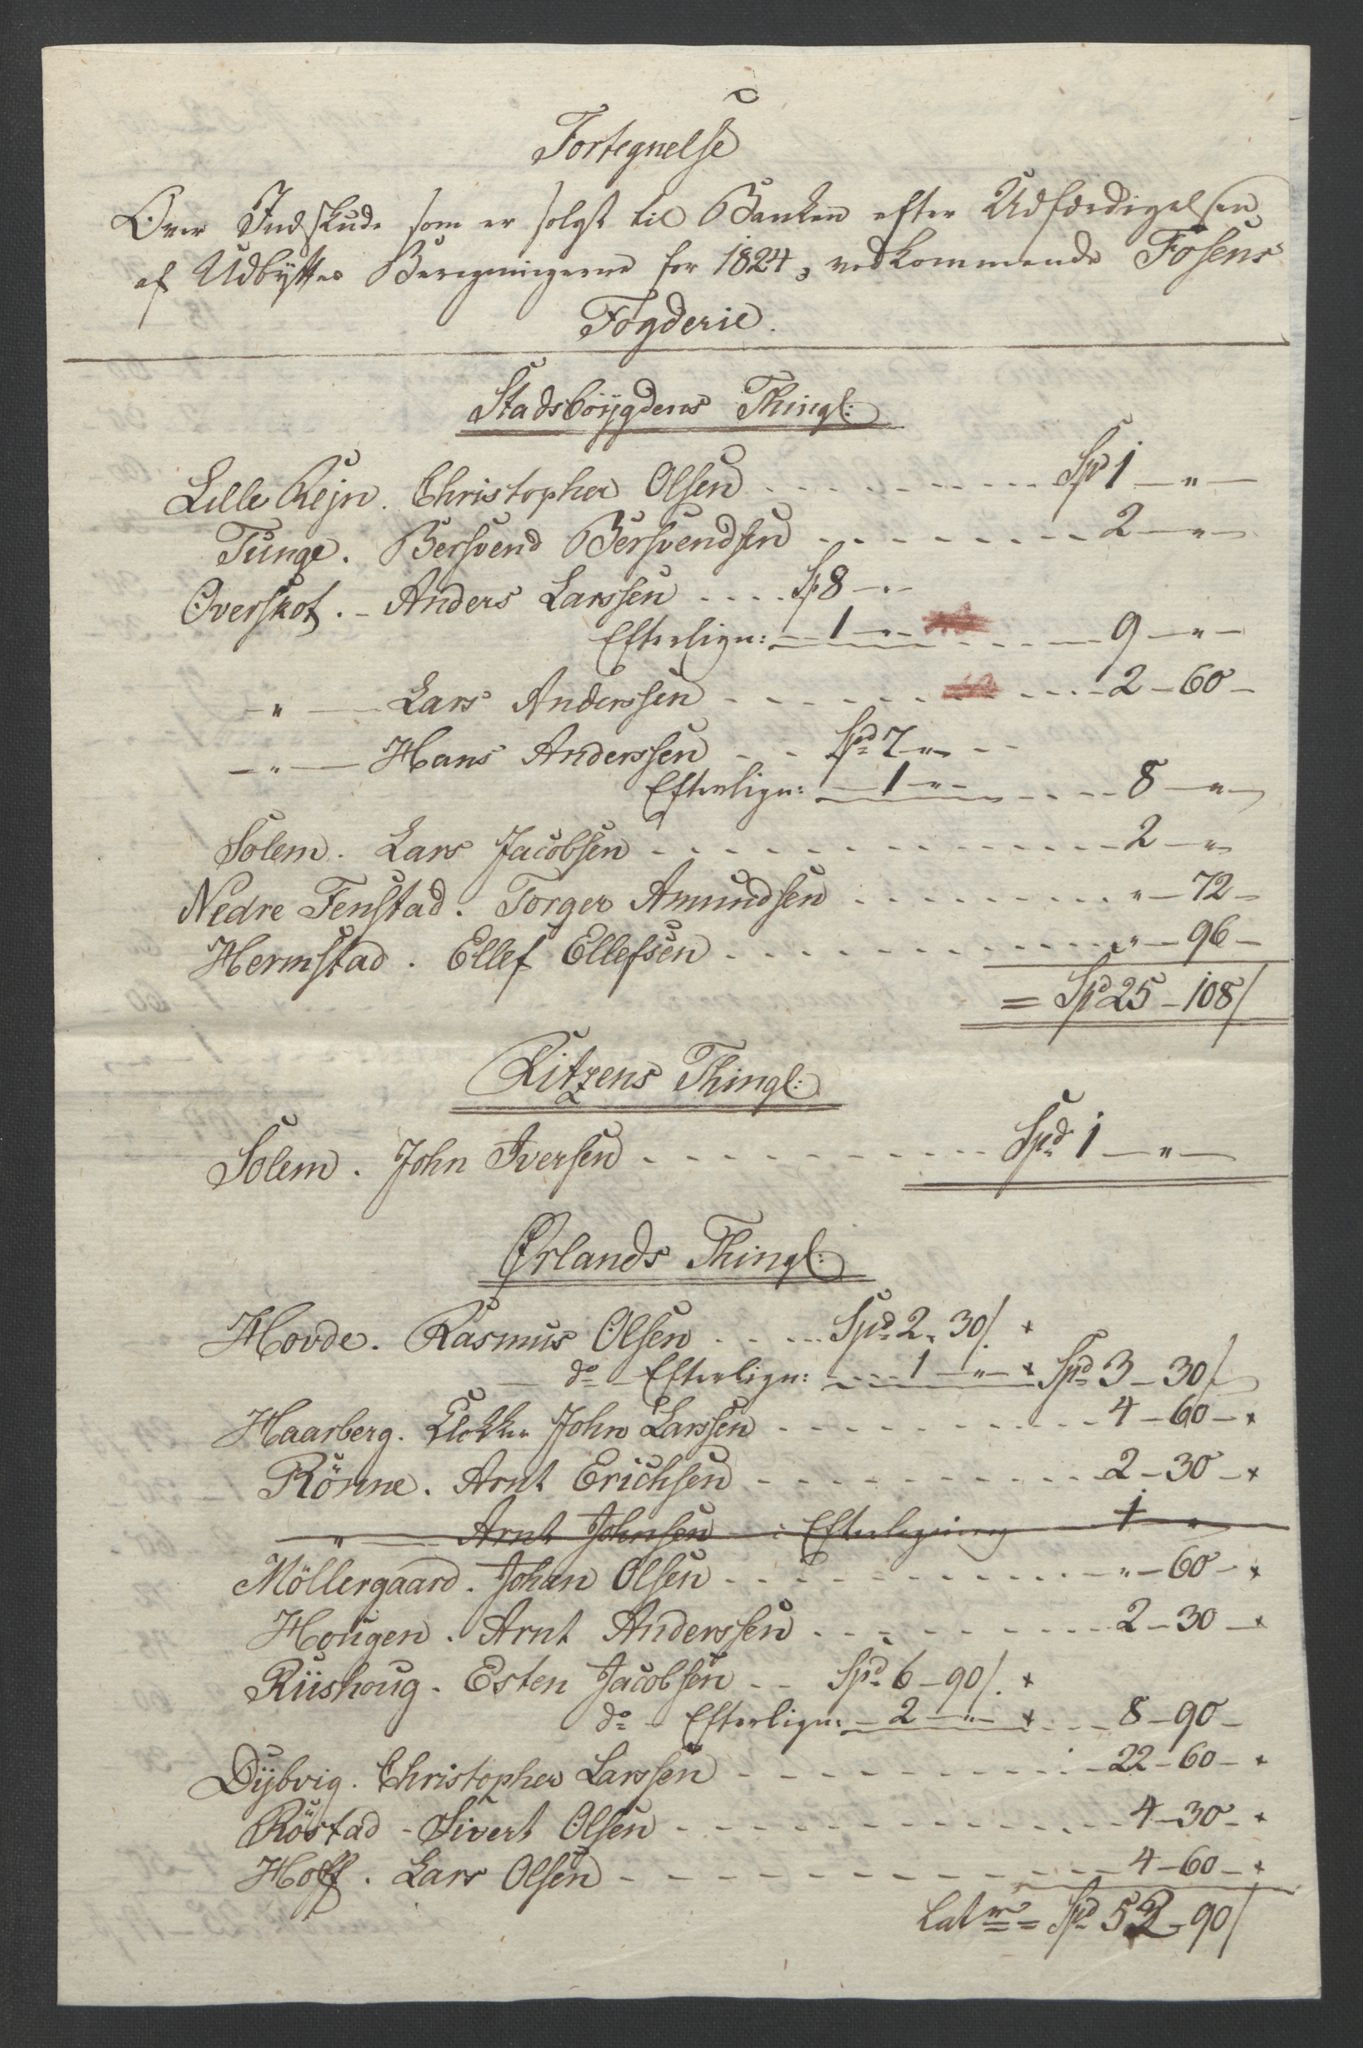 Fortegnelse
Over Indskude som er solgt til Banken efter Udfærdigelsen
af Udbyttes Beregningerne for 1824, vedkommende Fosens
Fogderie.
Stadsböÿgdens Thingl:
Lille Rejn. Christopher Olsen - - - Spd 1 — " —
Tunge. Bersvend Bersvendsen - - - 2 — " —
Overskot. - Anders Larssen - - - Sp 8 - " -
Efterlign: - 1 - " - - - - 9 — " —
— " — Lars Anderssen - - - 2 - 60 -
— " — Hans Anderssen - - Spd 7 - " -
Efterlign: - 1 - " - - - - 8 — " —
Solem. Lars Jacobsen - - - 2 — "
Nedre Fenstad. Torger Amundsen - - - " - 72 -
Hermstad. Ellef Ellefsen - - - " - 96 -
= Spd 25 - 108/
Ritzens Thingl:
Solem. John Iversen - - - Spd 1 — " —
Ørlands Thingl:
Hovde. Rasmus Olsen - - - Spd 2 " 30/. +
do - Efterlign: - - - 1 - " - + Spd 3 - 30/
Haarberg. Klokker John Larssen - - - 4 - 60 - +
Rönne. Arnt Erichsen - - - 2 - 30 - +
— " — Arnt Johnsen - : Efterlegning 1 "
Möllergaard. Johan Olsen - - - " - 60 - +
Hougen. Arnt Anderssen - - - 2 - 30 - +
Riishoug. Esten Jacobsen - - Spd 6 - 90/. +
do - Efterlign: - 2 - " - + - - - 8 - 90 -
Dÿbvig. Christopher Larssen - - - 22 - 60 - +
Röstad - Sivert Olsen - - - 4 - 30 - +
Hoff. Lars Olsen - - - 4 - 60 - +
Lat = Spd 53 - 90/